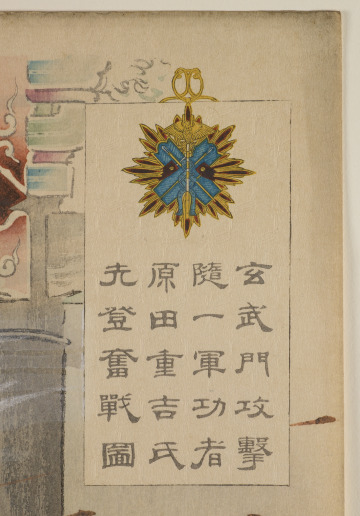 玄武門攻擊
隨一軍功者
原田重吉氏
先登奮戰圖